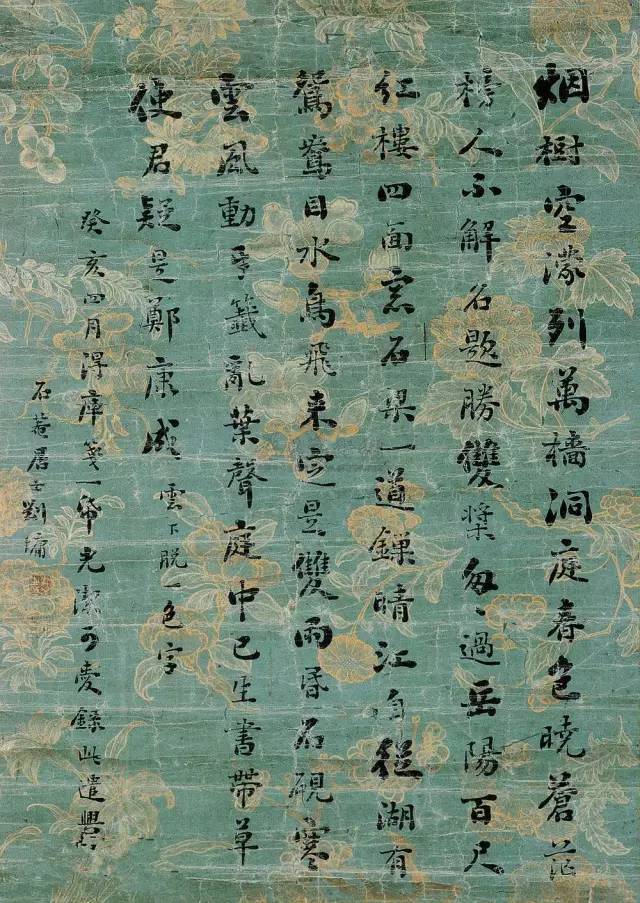 烟樹空濛列萬檣洞庭春色曉蒼茫
榜人不解名題勝雙槳匆々過岳陽百尺
紅樓四面窓石梁一道鏁晴江自從湖有
鴛鴦目水鳥飛來定是雙雨昏石硯寒
雲風動牙籤亂葉聲庭中已生書帶草
使君疑是鄭康成雲下脫一色字
癸亥四月淂庫箋一帋光潔可愛錄此遣興
石菴居士劉墉